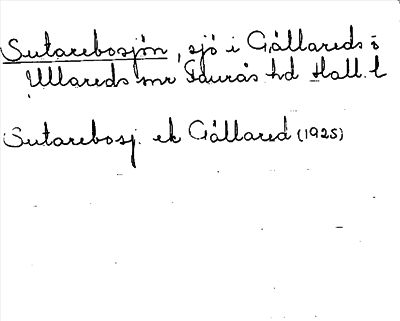 Sutarebosjön, sjö i Gällareds o
Ullareds snr Faurås hd Hall. l
Sutarebosj. ek Gällared (1925)